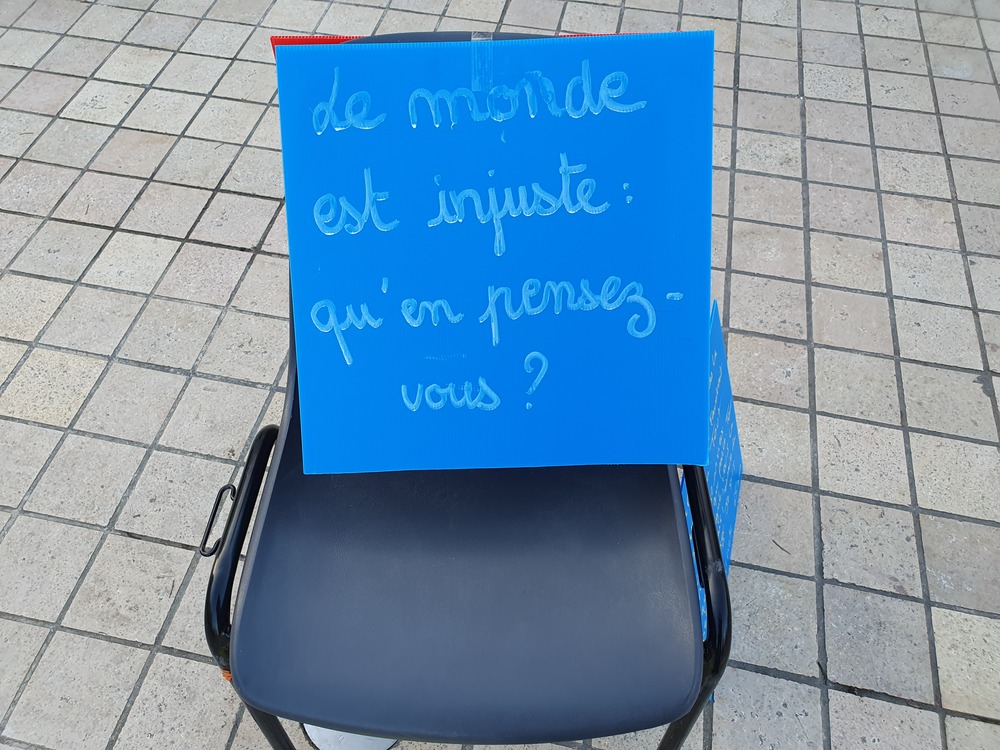 Le monde
est injuste :
qu'en pensez-
vous ?